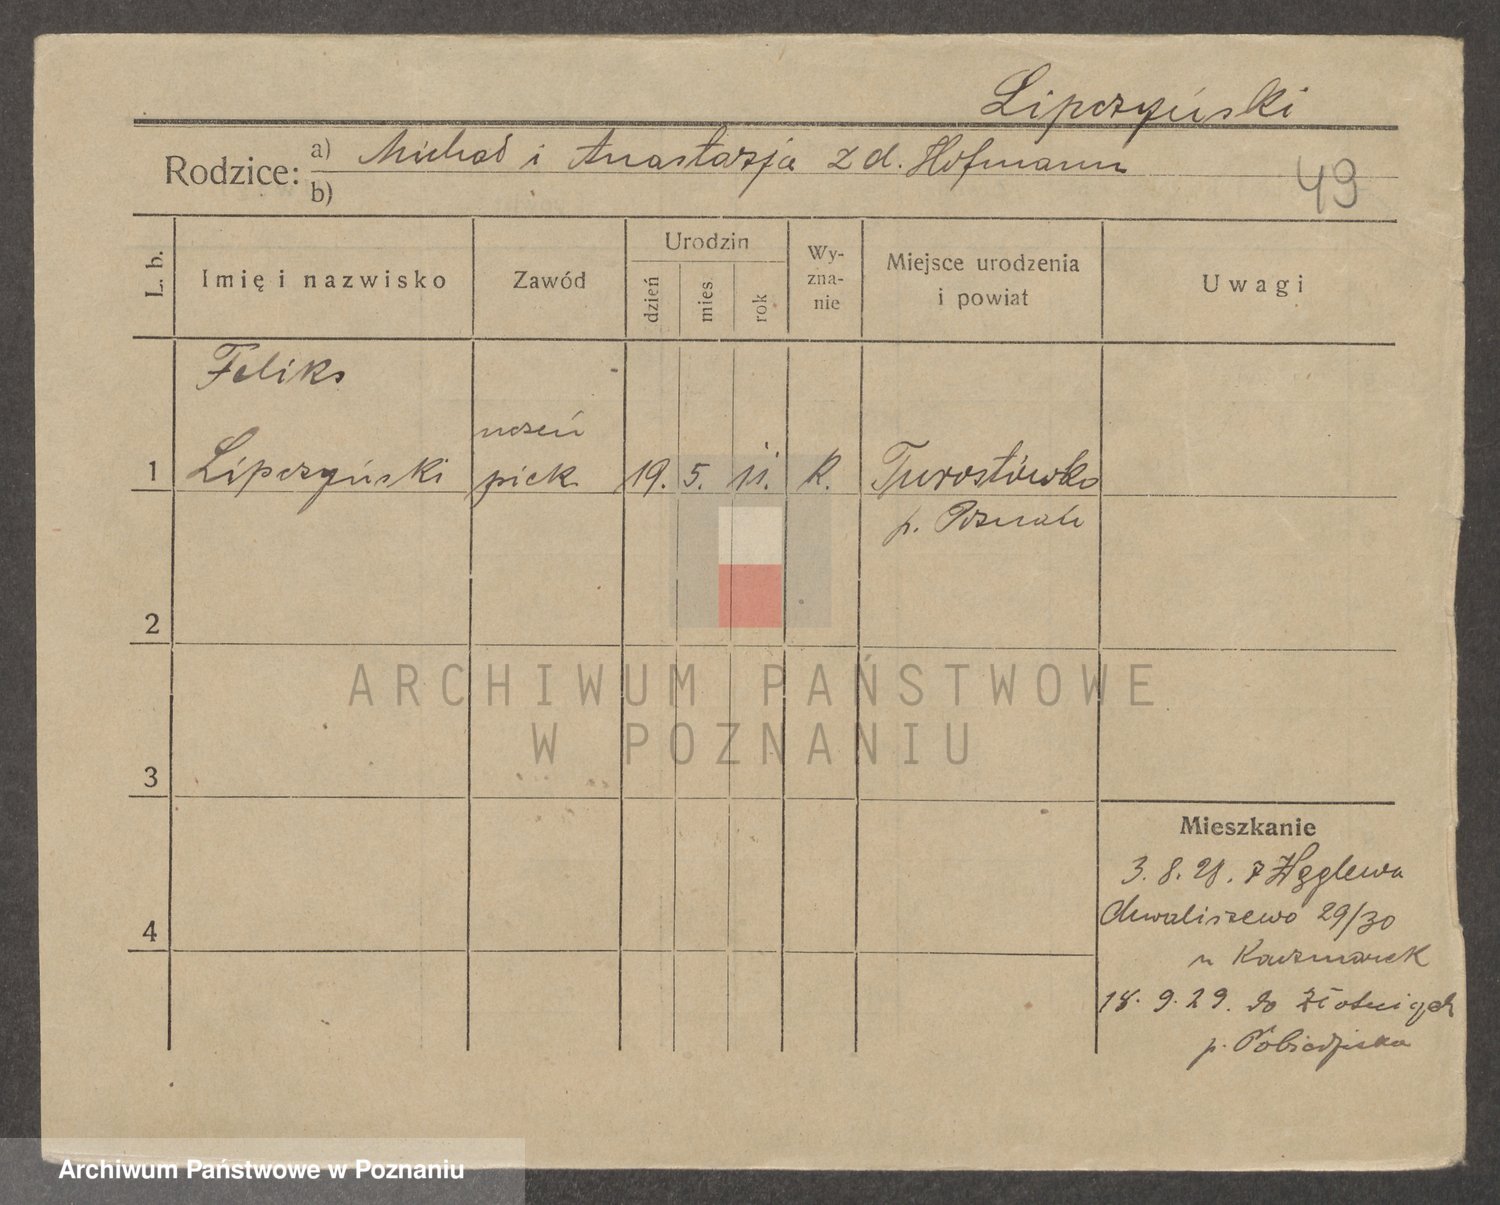 Lipczyński
Rodzice: a) Michał i Anastazja z d. Hofmann
b)
49
L. b.
Imię i nazwisko
Zawód
Urodzin
dzień
mies.
rok
Wy-
zna-
nie
Miejsce urodzenia
i powiat
Uwagi
Feliks
uczeń
1 Lipczyński piek. 19. 5. 11. k. Turostówko
p. Poznań
2
3
4
Mieszkanie
3. 8. 28. z Węglewa
Chwaliszewo 29/30
u Kaczmarek
18. 9. 29. do
p. Pobiedziska
ARCHIWUM PAŃSTWOWE
W POZNANIU
Archiwum Państwowe w Poznaniu